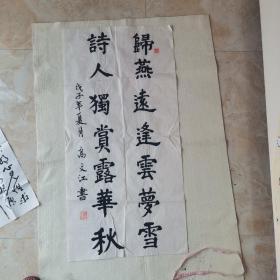 歸燕遠逢雲夢雪
詩人獨賞露華秋
戊子年夏月 高文江書